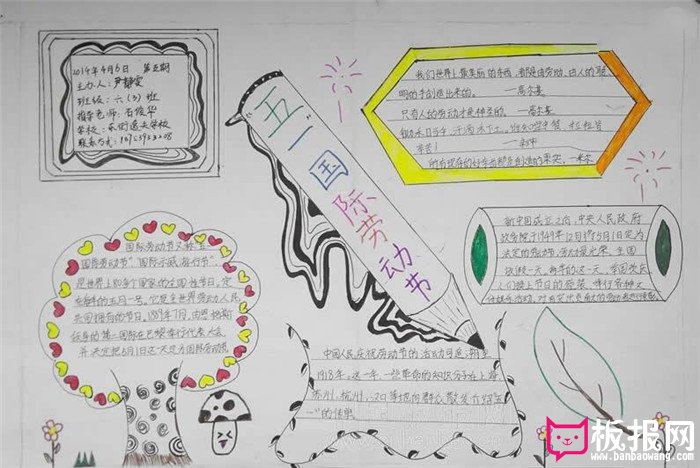 2014年4月6日 第五期
主办人:尹静雯
班级:六(3)班
指导老师:石俊华
学校:东街逸夫学校
五一国际劳动节
我们世界上最美丽的东西,都是由劳动、由人的聪
明的手创造出来的。——高尔基
只有人的劳动才是神圣的。——高尔基
新中国成立之后,中央人民政府
政务院于1949年12月将5月1日定为
法定的劳动节,
放假一天。每年的这一天,举国欢庆
国际劳动节又称"五一
国际劳动节""国际示威游行节",
是世界上80多个国家的全国性节日。定
在每年的五月一号。它是全世界劳动人民
共同拥有的节日。1889年7月,由恩格斯
领导的第二国际在巴黎举行代表大会。
并决定把5月1日这一天定为国际劳动节。
中国人民庆祝劳动节的活动可追溯至
1918年。这一年,一些革命的知识分子在上海、
苏州、杭州、汉口等地向群众散发介绍"五
一"的传单。
板报网
www.banbaowang.com